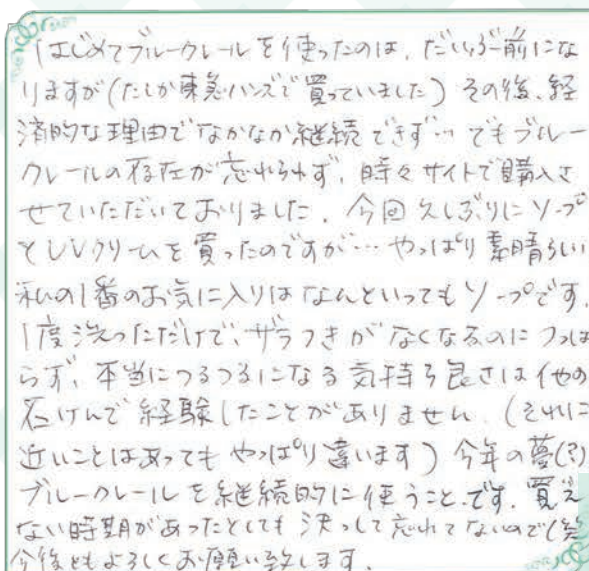 はじめてブルークレールを使ったのは、だいぶ前にな
りますが(たしか東急ハンズで買っていました)その後、経
済的な理由でなかなか継続できず… でもブルー
クレールの存在が忘れられず、時々サイトで購入さ
せていただいておりました。今回久しぶりにソープ
とUVクリームを買ったのですが… やっぱり素晴らしい
私の1番のお気に入りはなんといってもソープです。
1度洗っただけで、ザラつきがなくなるのにつっぱ
らず、本当につるつるになる気持ち良さは他の
石けんで経験したことがありません。(それに
近いことはあってもやっぱり違います)今年の夢(?)
ブルークレールを継続的に使うこと、です。買え
ない時期があったとしても決して忘れてないので(笑
今後ともよろしくお願い致します。